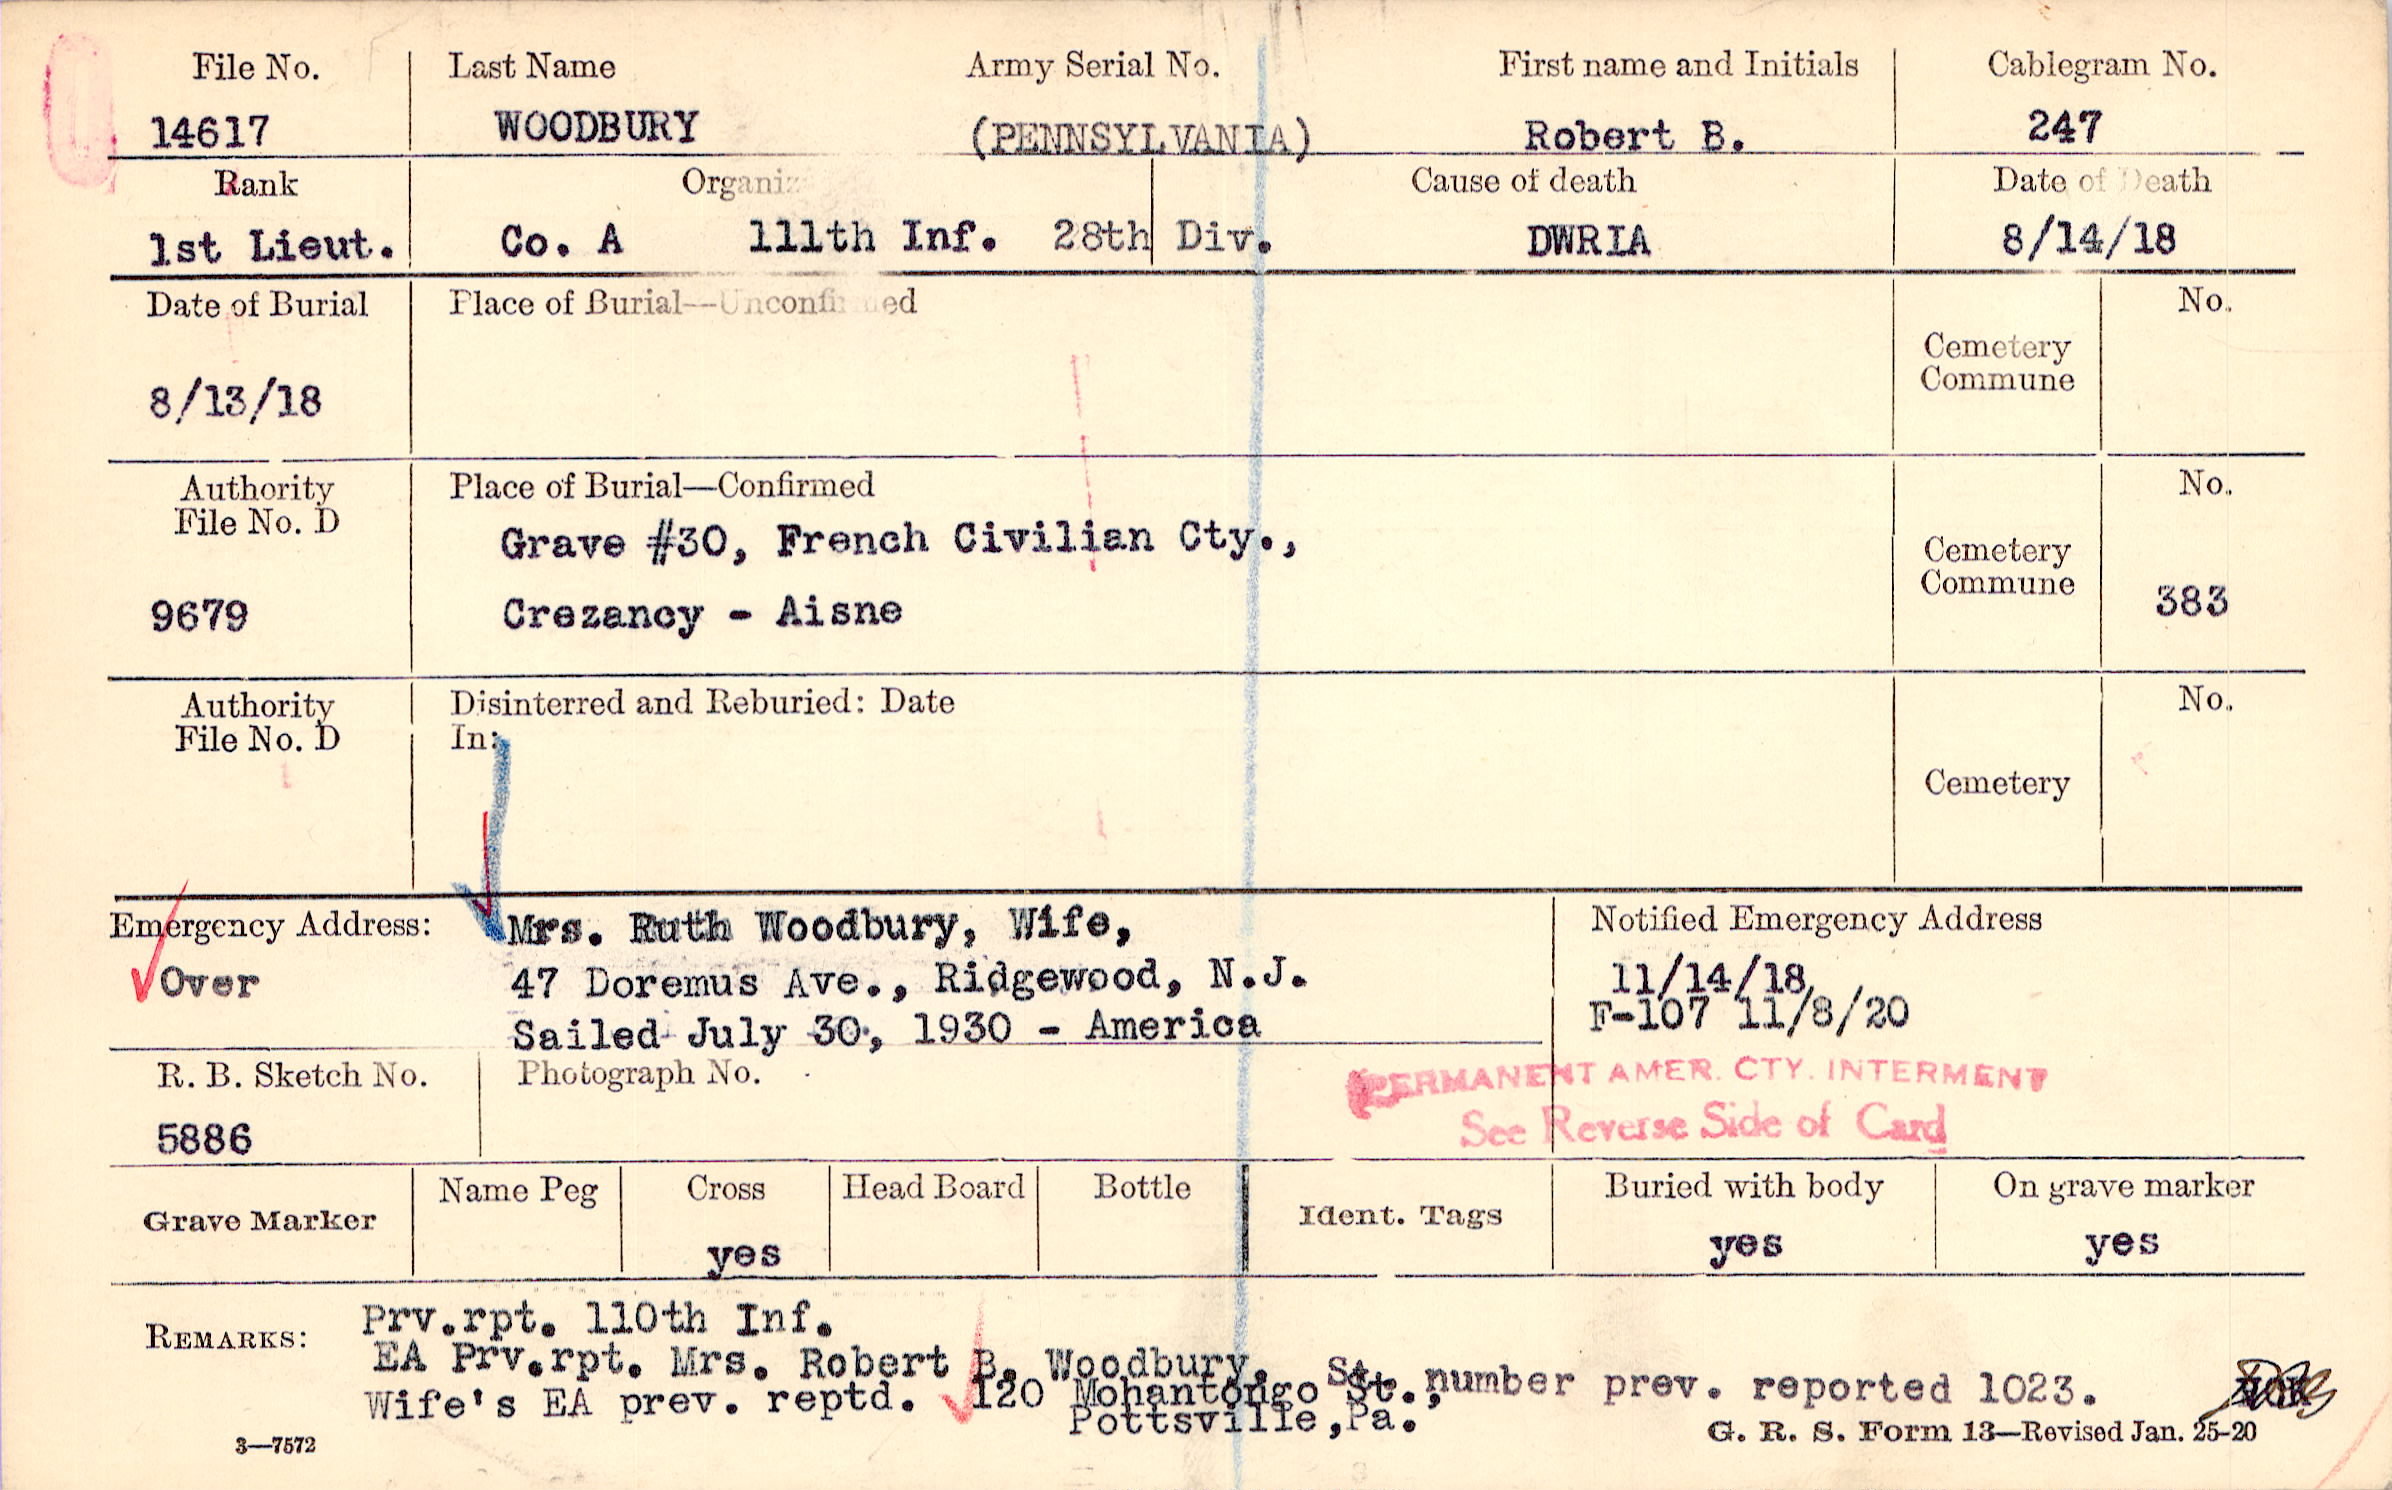 File No. Last Name Army Serial No. First name and Initials Cablegram No.
14617 WOODBURY (PENNSYLVANIA) Robert B. 247
Rank Organiz Cause of death Date of Death
1st Lieut. Co. A 111th Inf. 28th Div. DWRIA 8/14/18
Date of Burial Place of Burial—Unconfirmed No.
Cemetery
Commune
8/13/18
Authority Place of Burial—Confirmed No.
File No. D
Grave #30, French Civilian Cty.,
Cemetery
Commune
9679 Crezancy - Aisne 383
Authority Disinterred and Reburied: Date No.
File No. D In:
Cemetery
Emergency Address: Mrs. Ruth Woodbury, Wife, Notified Emergency Address
Over 47 Doremus Ave., Ridgewood, N.J. 11/14/18
Sailed July 30, 1930 - America F-107 11/8/20
R. B. Sketch No. Photograph No. PERMANENT AMER. CTY. INTERMENT
5886 See Reverse Side of Card
Grave Marker Name Peg Cross Head Board Bottle Ident. Tags Buried with body On grave marker
yes yes yes
REMARKS: Prv.rpt. 110th Inf.
EA Prv.rpt. Mrs. Robert B. Woodbury. St. number prev. reported 1023.
Wife's EA prev. reptd. 120 Mohantongo St.,
Pottsville,Pa.
3—7572 G. R. S. Form 13—Revised Jan. 25-20